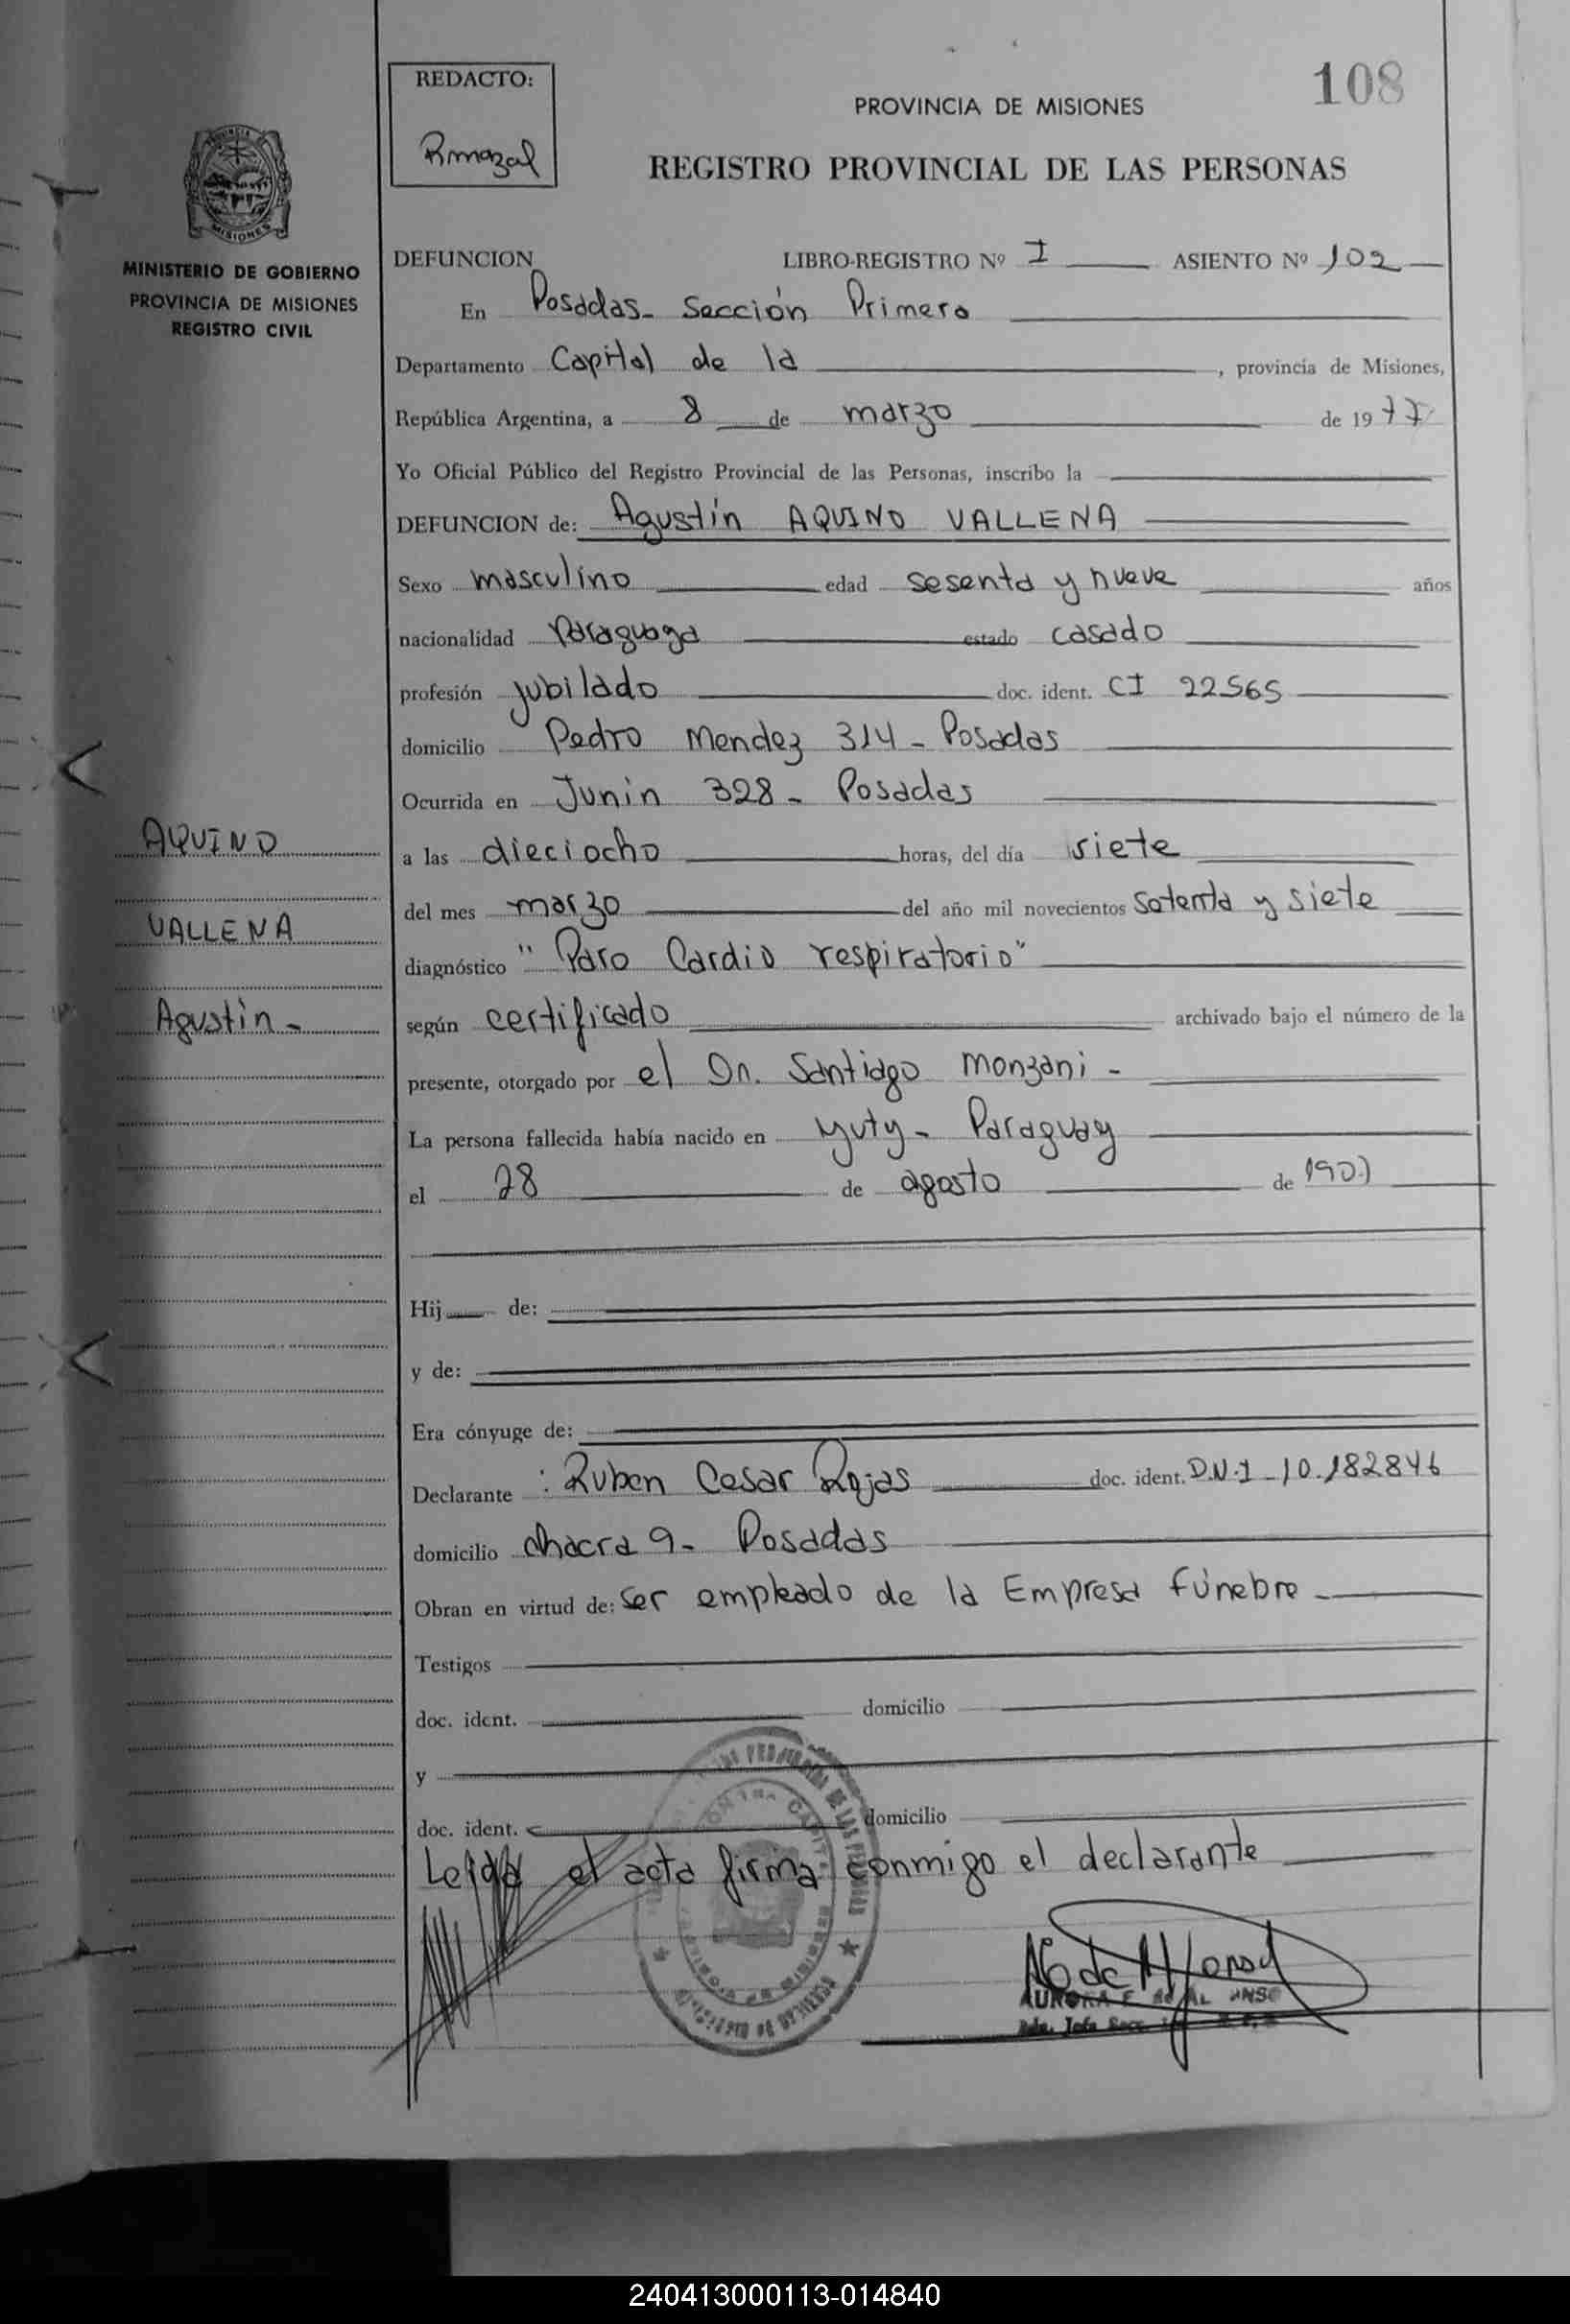 108
REDACTO:
Rmazal
PROVINCIA DE MISIONES
REGISTRO PROVINCIAL DE LAS PERSONAS
PROVINCIA
MISIONES
MINISTERIO DE GOBIERNO
PROVINCIA DE MISIONES
REGISTRO CIVIL
DEFUNCION LIBRO-REGISTRO Nº I ASIENTO Nº 102
En Posadas - Sección Primera
Departamento Capital de la , provincia de Misiones,
República Argentina, a 8 de marzo de 1977
Yo Oficial Público del Registro Provincial de las Personas, inscribo la
DEFUNCION de: Agustín AQUINO VALLENA
Sexo masculino edad sesenta y nueve años
nacionalidad Paraguaya estado casado
profesión jubilado doc. ident. CI 22565
domicilio Pedro Mendez 314 - Posadas
Ocurrida en Junin 328 - Posadas
AQUINO
VALLENA
Agustín -
a las dieciocho horas, del día siete
del mes marzo del año mil novecientos setenta y siete
diagnóstico "Paro Cardio respiratorio"
según certificado archivado bajo el número de la
presente, otorgado por el Dr. Santiago Monzani -
La persona fallecida había nacido en Yuty - Paraguay
el 28 de agosto de 1907
Hij de:
y de:
Era cónyuge de:
Declarante : Ruben Cesar Rojas doc. ident. D.N.I - 10.182846
domicilio chacra 9 - Posadas
Obran en virtud de: ser empleado de la Empresa fúnebre
Testigos
doc. ident. domicilio
y
doc. ident. domicilio
Leida el acta firma conmigo el declarante
240413000113-014840